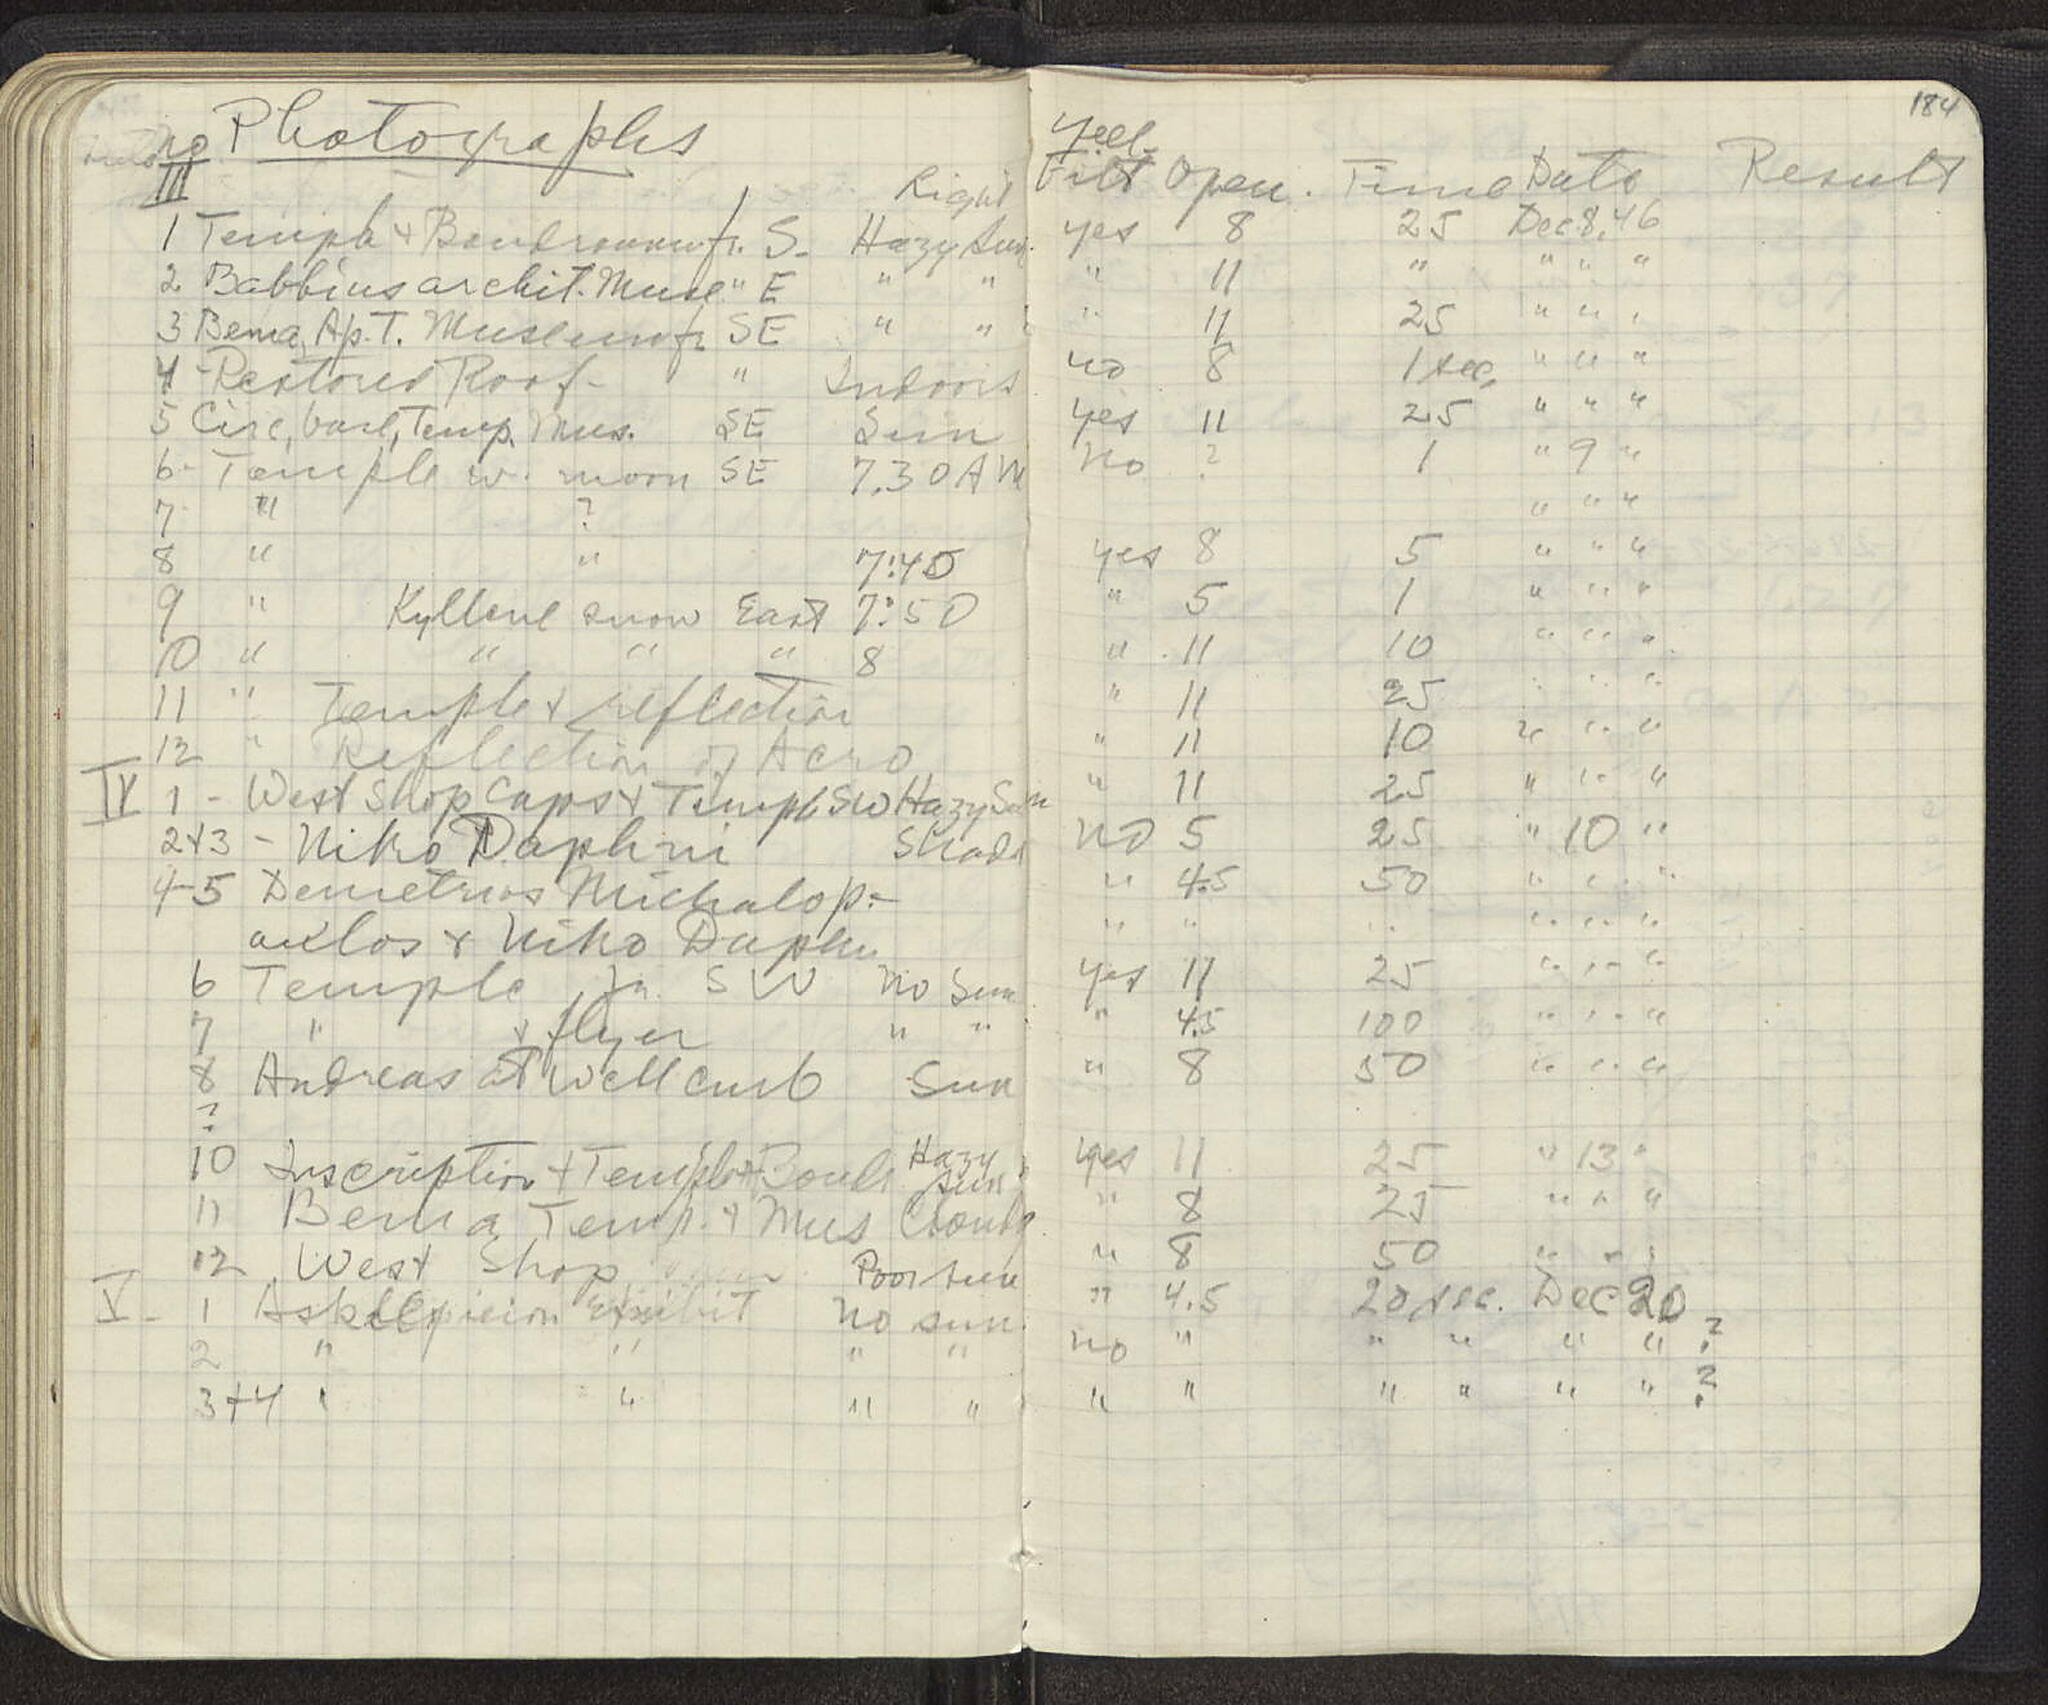 no Photographs Yell. 184
III Right Filt Open. Time Date Result
1 Temple + fr. S. Hazy Sun. yes 8 25 Dec 8, 46
2 Babbius archit. Muse " E " " " 11 " " " "
3 Bema, Ap. T. Museum fr. SE " " " 11 25 " " "
4 - Restored Roof - " Indoors no 8 1 sec. " " "
5 Circ, base, Temp. Mus. SE Sun yes 11 25 " " "
6 - Temple w. moon SE 7.30 AM no ? 1 " 9 "
7 " ? " " "
8 " " 7:40 yes 8 5 " " "
9 " Kyllene snow East 7:50 " 5 1 " " "
10 " " " " 8 " 11 10 " " "
11 " Temple + reflection " 11 25 " " "
12 " Reflection of Acro " 11 10 " " "
IV 1 - West Shop Caps + Temple SW Hazy Sun " 11 25 " " "
2+3 - Niko Daphni Shade no 5 25 " 10 "
4-5 Demetrios Michalop- " 4.5 50 " " "
oulos + Niko Daphni " " " " " "
6 Temple fr. SW No Sun yes 11 25 " " "
7 " + flyer " " " 4.5 100 " " "
8 Andreas at well curb Sun " 8 50 " " "
?
10 Inscription + Temple + Hazy Sun yes 11 25 " 13 "
11 Bema, Temp. + Mus Cloudy " 8 25 " " "
12 West Shop Poor sun " 8 50 " " "
V - 1 Asklepieion Exhibit No sun. " 4.5 20 sec. Dec 20
2 " " " " no " " " " " ?
3+4 " " " " " " " " " " ?